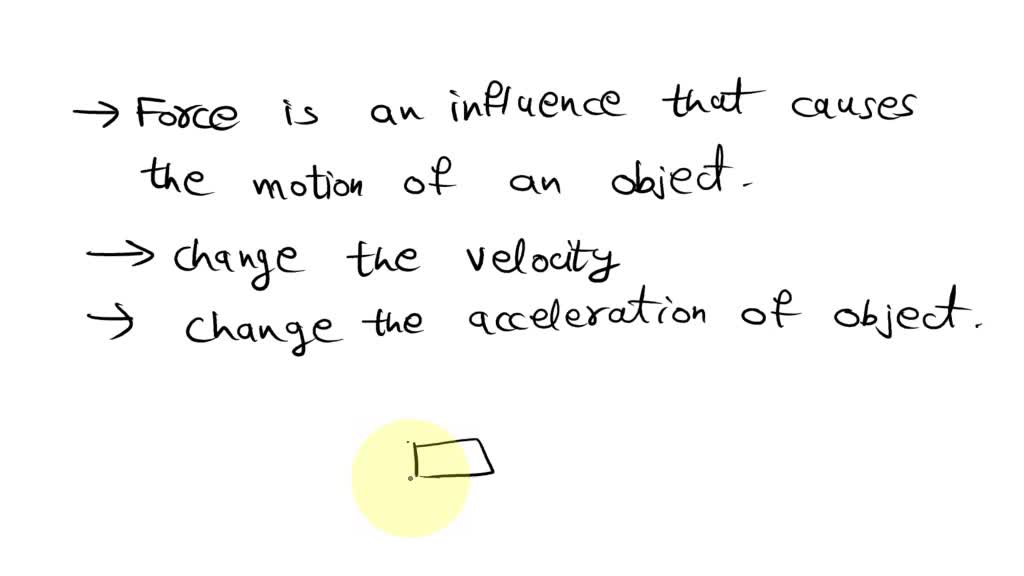 → Force is an influence that causes
the motion of an object.
→ change the velocity
→ change the acceleration of object.